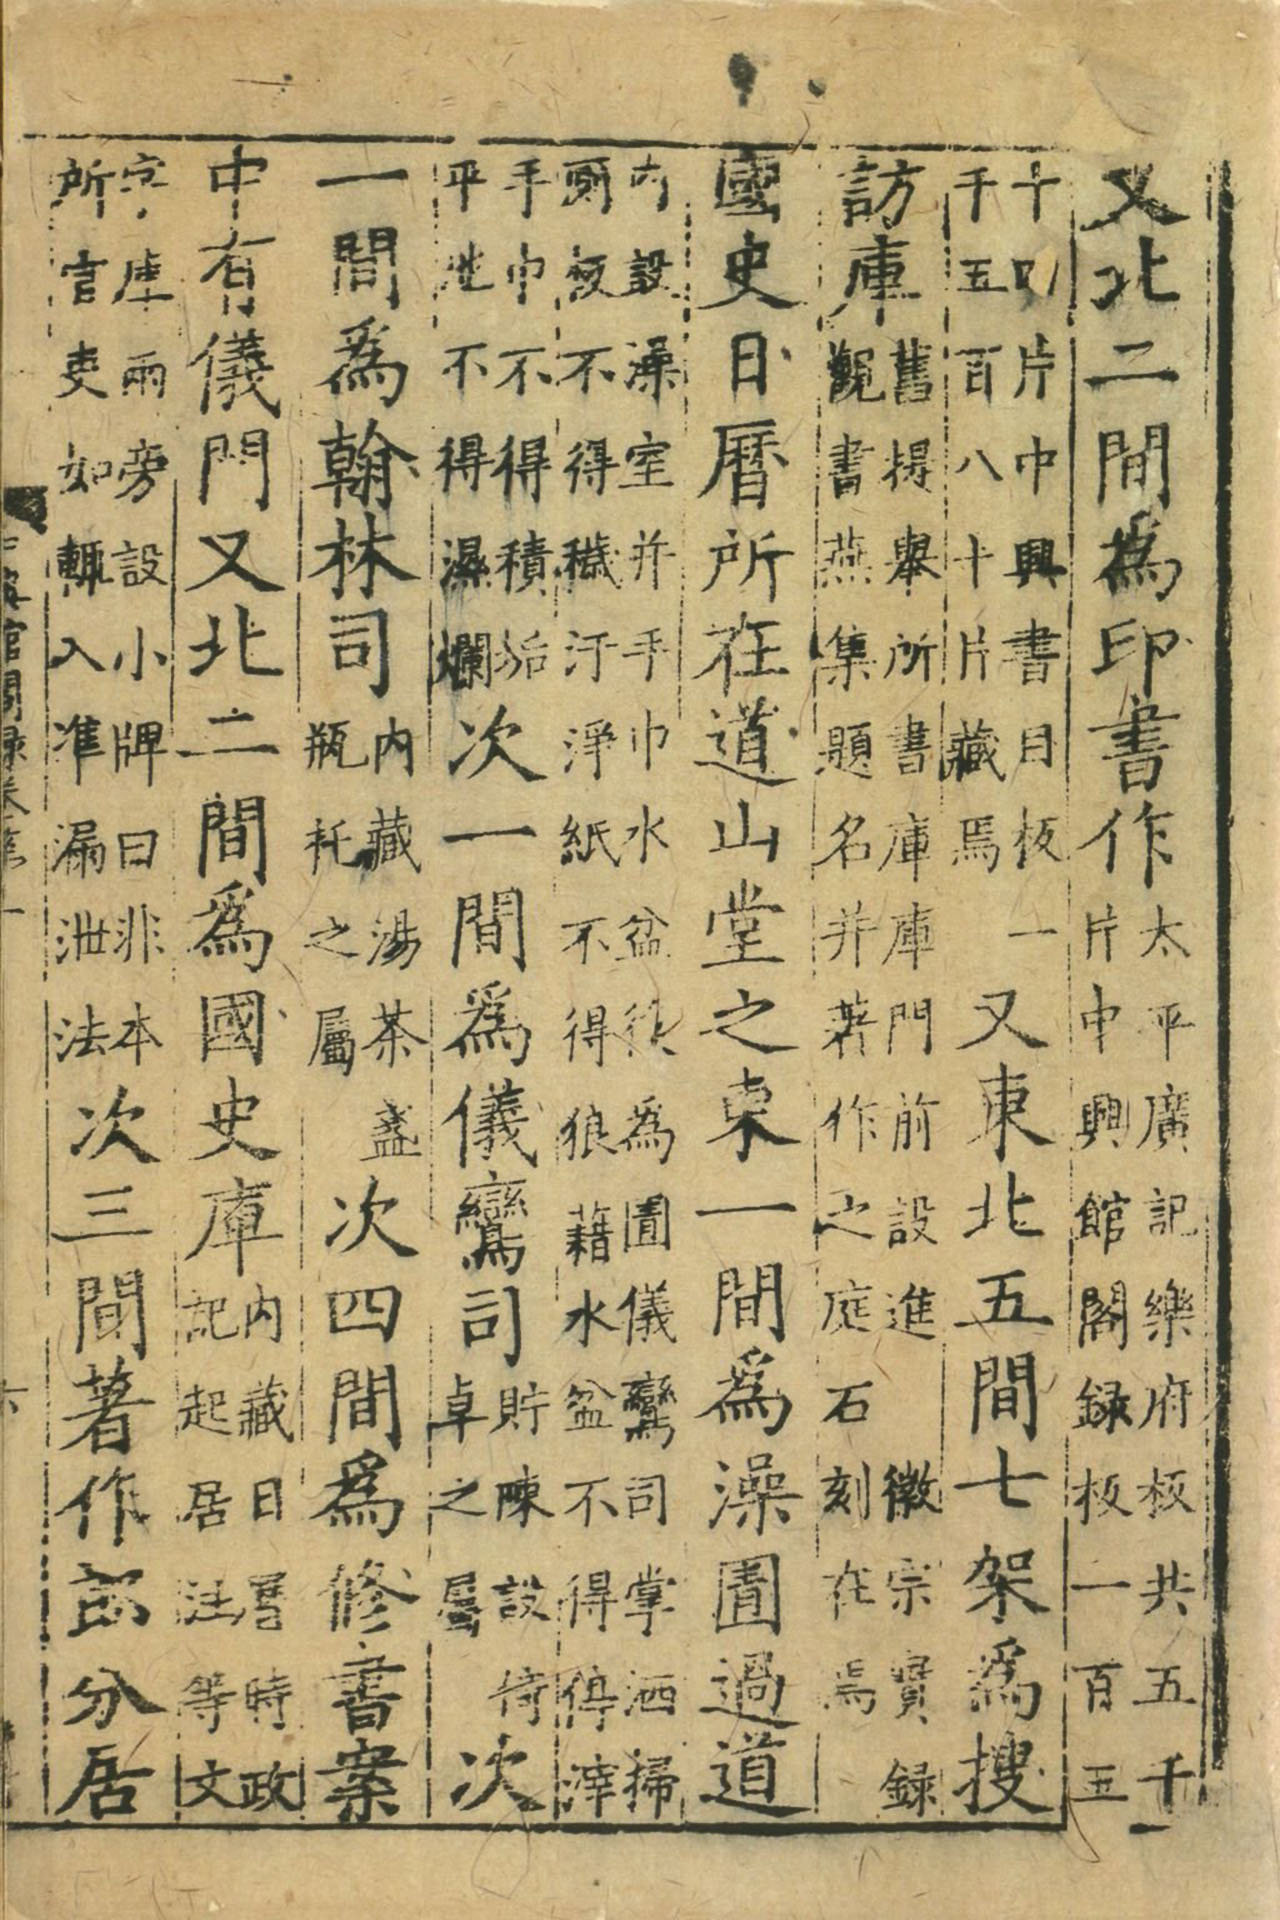 又北二間為印書作太平廣記樂府板共五千
片中興館閣録板一百五
十四片中興書目板一
千五百八十片藏焉又東北五間七架為搜
訪庫舊提舉所書庫庫門前設進徽宗實録
觀書燕集題名并著作之庭石刻在焉
國史日曆所在道山堂之東一間為澡圊過道
内設澡室并手巾水盆後為圊儀鸞司掌洒掃
厠板不得穢汙淨紙不得狼藉水盆不得停滓
手巾不得積垢
平地不得濕爛次一間為儀鸞司貯陳設倚
卓之屬次
一間為翰林司内藏湯茶盞
瓶托之屬次四間為修書案
中有儀門又北二間為國史庫内藏日曆時政
記起居注等文
字庫兩旁設小牌曰非本
所官吏如輒入准漏泄法次三間著作郎分居
館閣録卷第一
六